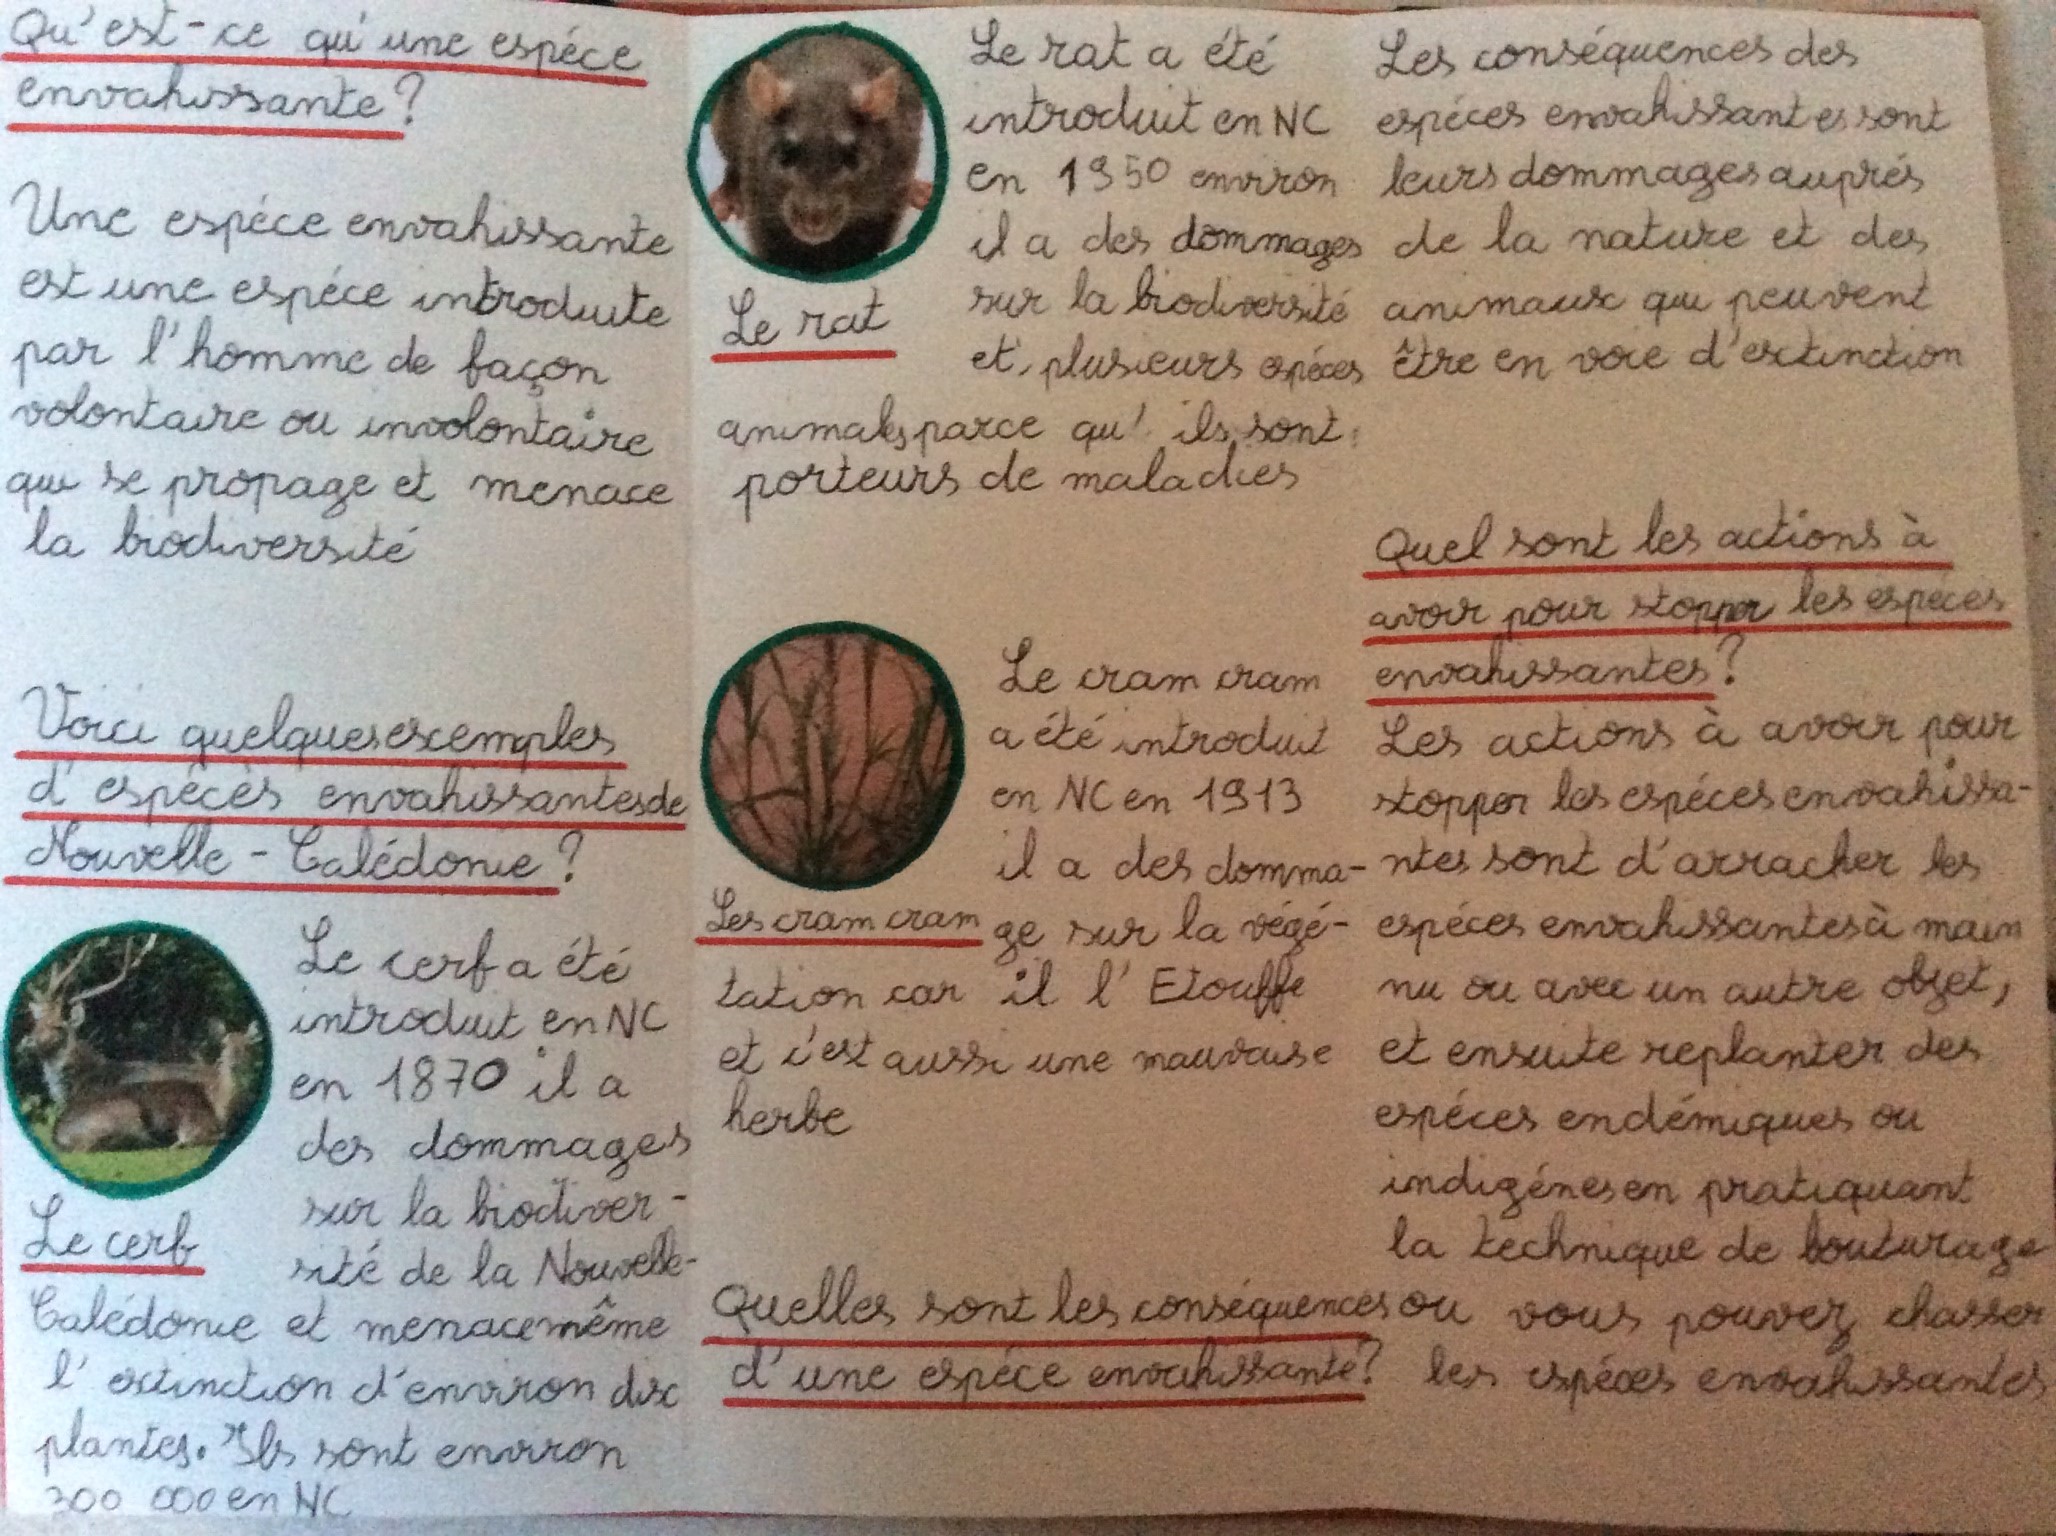 Qu'est-ce qu'une espéce
envahissante ?
Une espéce envahissante
est une espéce introduite
par l'homme de façon
volontaire ou involontaire
qui se propage et menace
la biodiversité
Voici quelques exemples
d'espécès envahissantes de
Nouvelle-Calédonie ?
Le cerf a été
introduit en NC
en 1870 il a
des dommages
sur la biodiver-
Le cerf
sité de la Nouvelle-
Calédonie et menace même
l'extinction d'environ dix
plantes. Ils sont environ
300 000 en NC
Le rat a été
introduit en NC
en 1950 environ
il a des dommages
sur la biodiversité
Le rat
et plusieurs espéces
animals parce qu'ils sont
porteurs de maladies
Le cram cram
a été introduit
en NC en 1913
il a des domma-
Les cram cram
ge sur la végé-
tation car il l'Etouffe
et c'est aussi une mauvaise
herbe
Quelles sont les conséquences
d'une espéce envahissante ?
Les conséquences des
espéces envahissantes sont
leurs dommages auprés
de la nature et des
animaux qui peuvent
être en voie d'extinction
Quel sont les actions à
avoir pour stopper les espéces
envahissantes ?
Les actions à avoir pour
stopper les espéces envahissa-
ntes sont d'arracher les
espéces envahissantes à main
nu ou avec un autre objet,
et ensuite replanter des
espéces endémiques ou
indigénes en pratiquant
la technique de bouturage
ou vous pouvez chasser
les espéces envahissantes